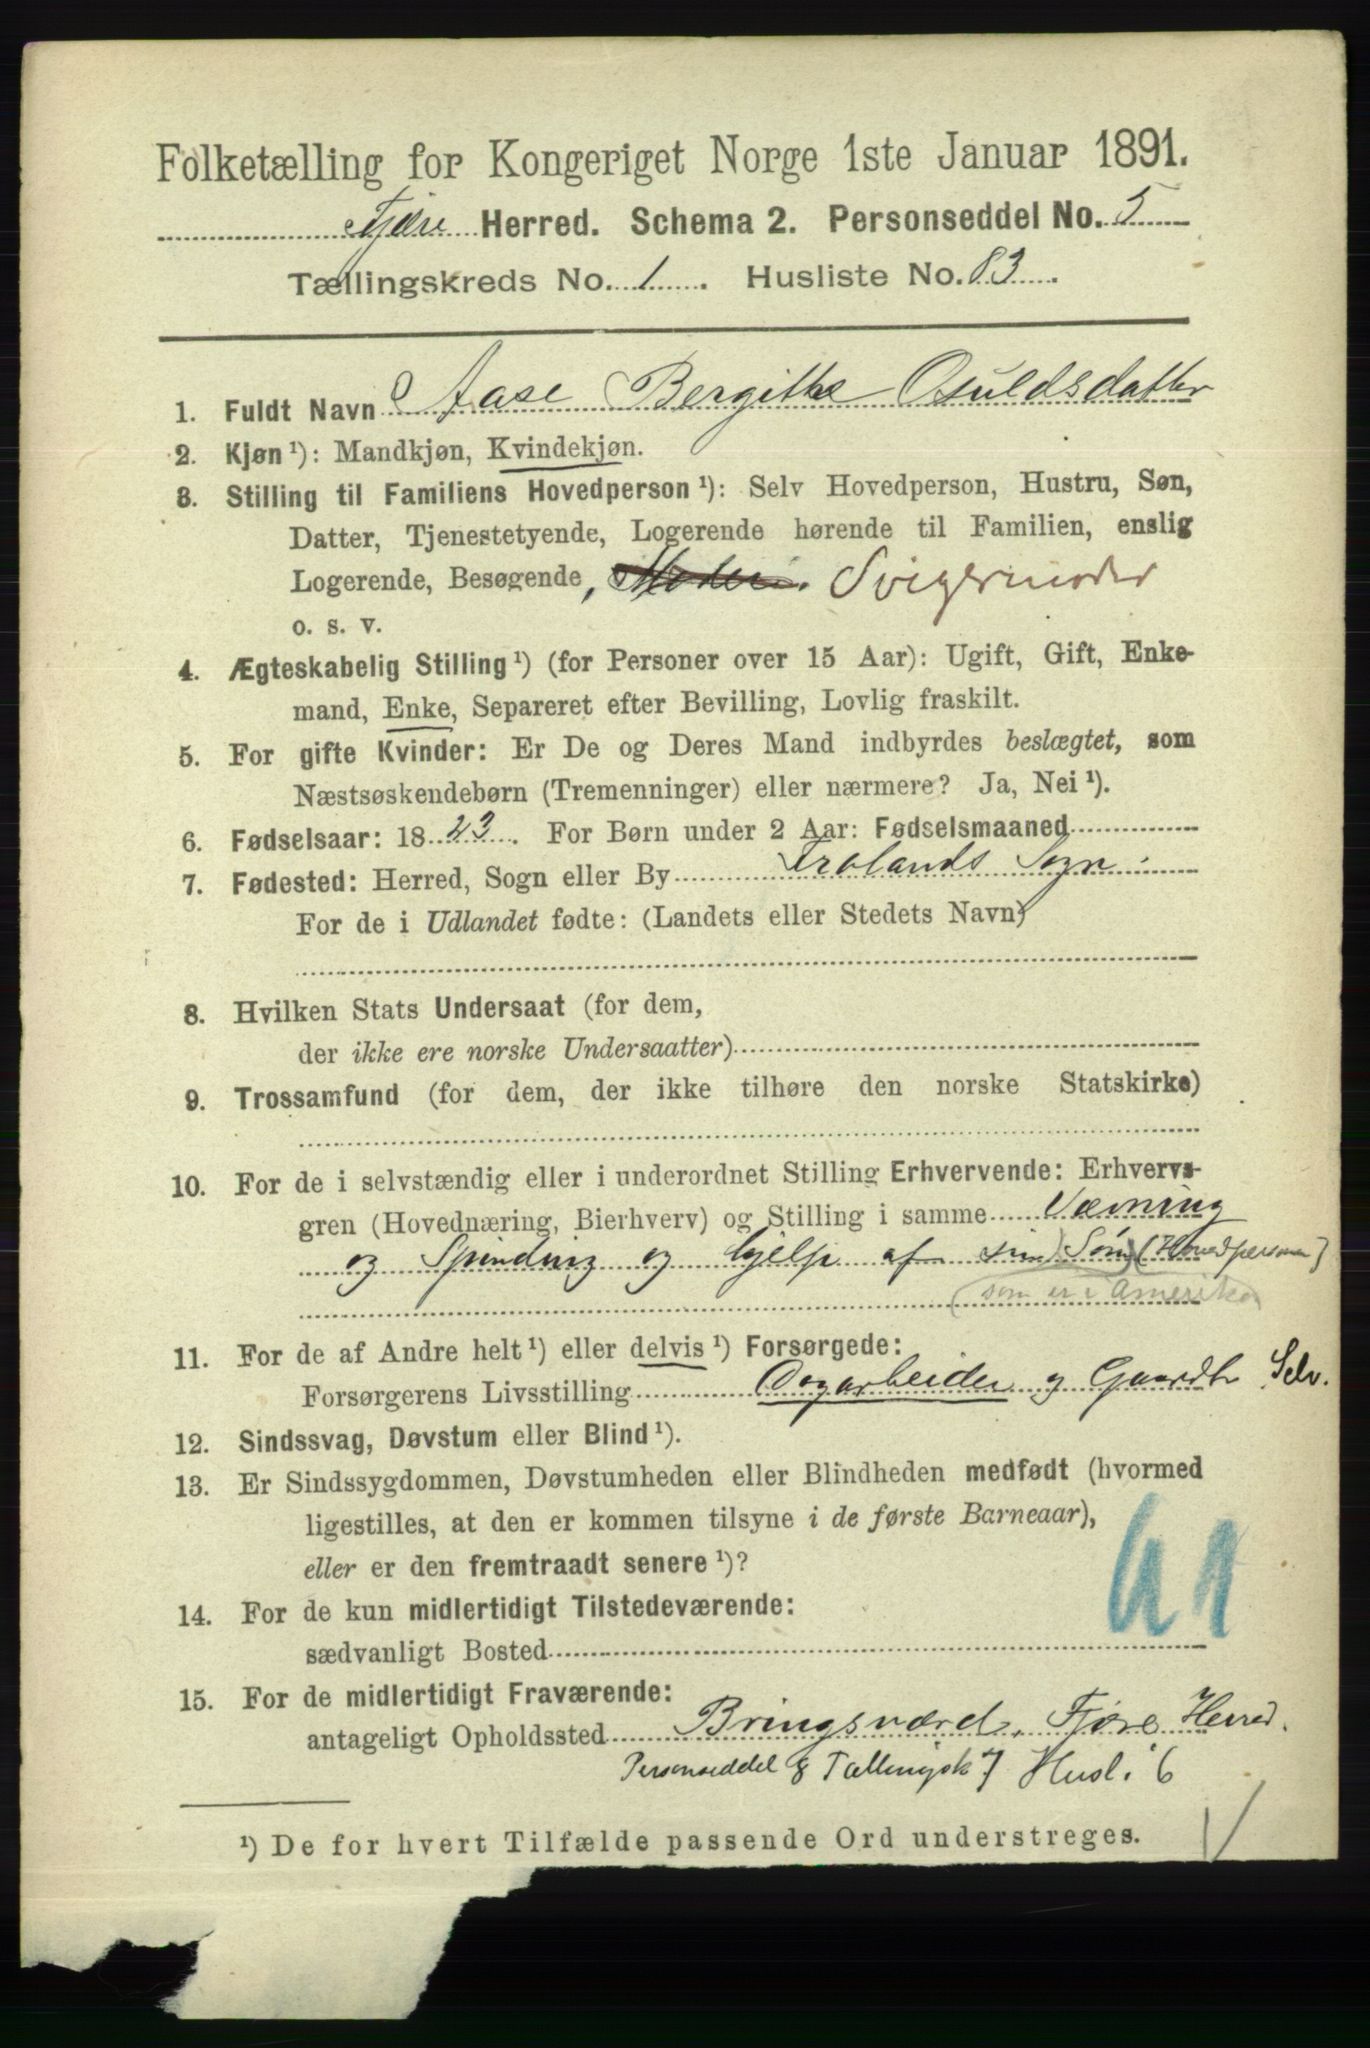 Folketælling for Kongeriget Norge 1ste Januar 1891.
Fjære Herred. Schema 2. Personseddel No. 5
Tællingskreds No. 1. Husliste No. 83.
1. Fuldt Navn Aase Bergitte Osuldsdatter
2. Kjøn ¹): Mandkjøn, Kvindekjøn.
3. Stilling til Familiens Hovedperson ¹): Selv Hovedperson, Hustru, Søn,
Datter, Tjenestetyende, Logerende hørende til Familien, enslig
Logerende, Besøgende, Moder. Svigermoder
o. s. v.
4. Ægteskabelig Stilling ¹) (for Personer over 15 Aar): Ugift, Gift, Enke-
mand, Enke, Separeret efter Bevilling, Lovlig fraskilt.
5. For gifte Kvinder: Er De og Deres Mand indbyrdes beslægtet, som
Næstsøskendebørn (Tremenninger) eller nærmere? Ja, Nei ¹).
6. Fødselsaar: 1823. For Børn under 2 Aar: Fødselsmaaned
7. Fødested: Herred, Sogn eller By Frolands Sogn.
For de i Udlandet fødte: (Landets eller Stedets Navn)
8. Hvilken Stats Undersaat (for dem,
der ikke ere norske Undersaatter)
9. Trossamfund (for dem, der ikke tilhøre den norske Statskirke)
10. For de i selvstændig eller i underordnet Stilling Erhvervende: Erhvervs-
gren (Hovednæring, Bierhverv) og Stilling i samme Vævning
og Spinding og hjelp af sin Søn (Hovedpersonen)
(som er i Amerika)
11. For de af Andre helt ¹) eller delvis ¹) Forsørgede:
Forsørgerens Livsstilling Dagarbeider og Gaardbr Selv.
12. Sindssvag, Døvstum eller Blind ¹).
13. Er Sindssygdommen, Døvstumheden eller Blindheden medfødt (hvormed
ligestilles, at den er kommen tilsyne i de første Barneaar),
eller er den fremtraadt senere ¹)?
14. For de kun midlertidigt Tilstedeværende:
sædvanligt Bosted
15. For de midlertidigt Fraværende:
antageligt Opholdssted Bringsværd, Fjøre Herred.
Personseddel 8 Tællingsk 7 Husli 6
¹) De for hvert Tilfælde passende Ord understreges.